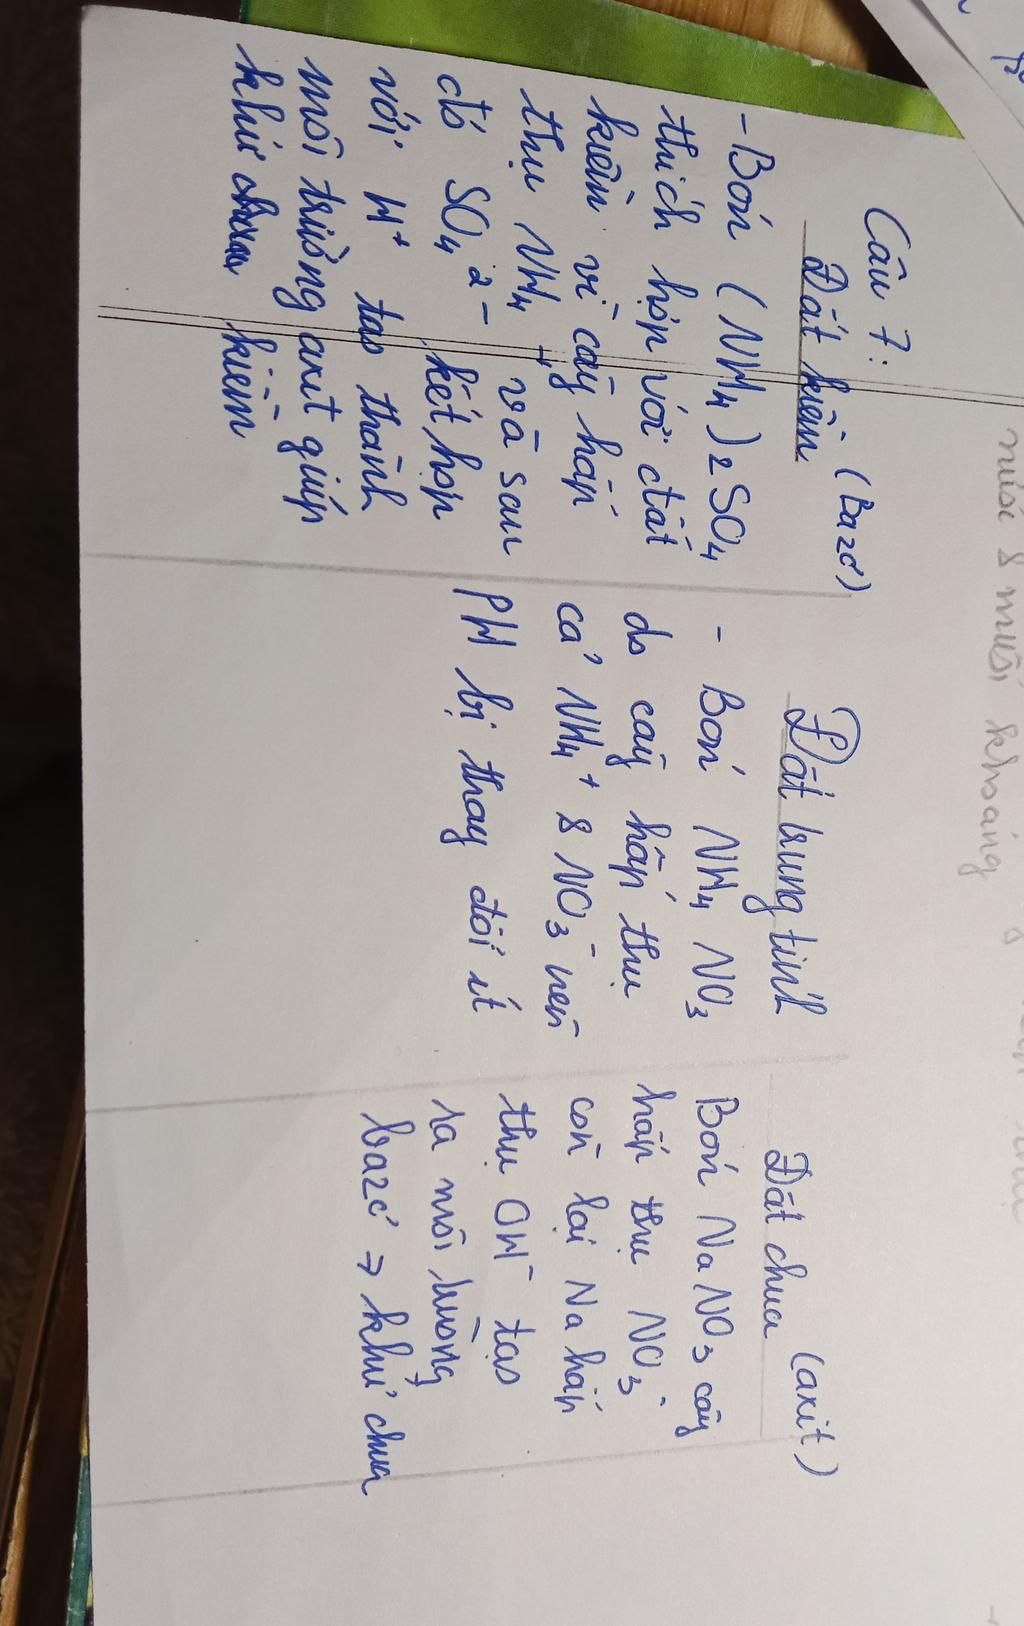 Câu 7:
Đất kiềm (Bazơ)
- Bón (NH4)2SO4
thích hợp với đất
kiềm vì cây hấp
thụ NH4+ và sau
đó SO4 2- kết hợp
với H+ tạo thành
môi trường axit giúp
khử chua kiềm
Đất trung tính
- Bón NH4NO3
do cây hấp thụ
cả NH4+ & NO3- nên
PH bị thay đổi ít
Đất chua (axit)
Bón NaNO3 cây
hấp thụ NO3-
còn lại Na hấp
thụ OH- tạo
ra môi trường
bazơ => khử chua
muối khoáng